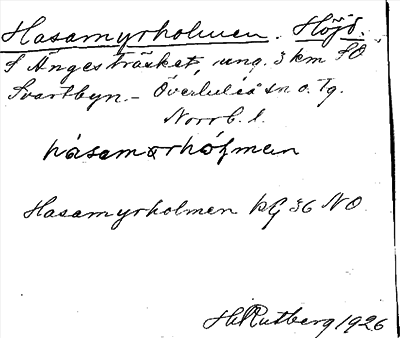 Hasamyrholmen. Höjd.
S Ängesträsket, ung. 3 km SO
Svartbyn. - Överluleå sn o. Tg.
Norrb. l.
hásamørhólmen
Hasamyrholmen kG 36 NO.
H Rutberg 1926